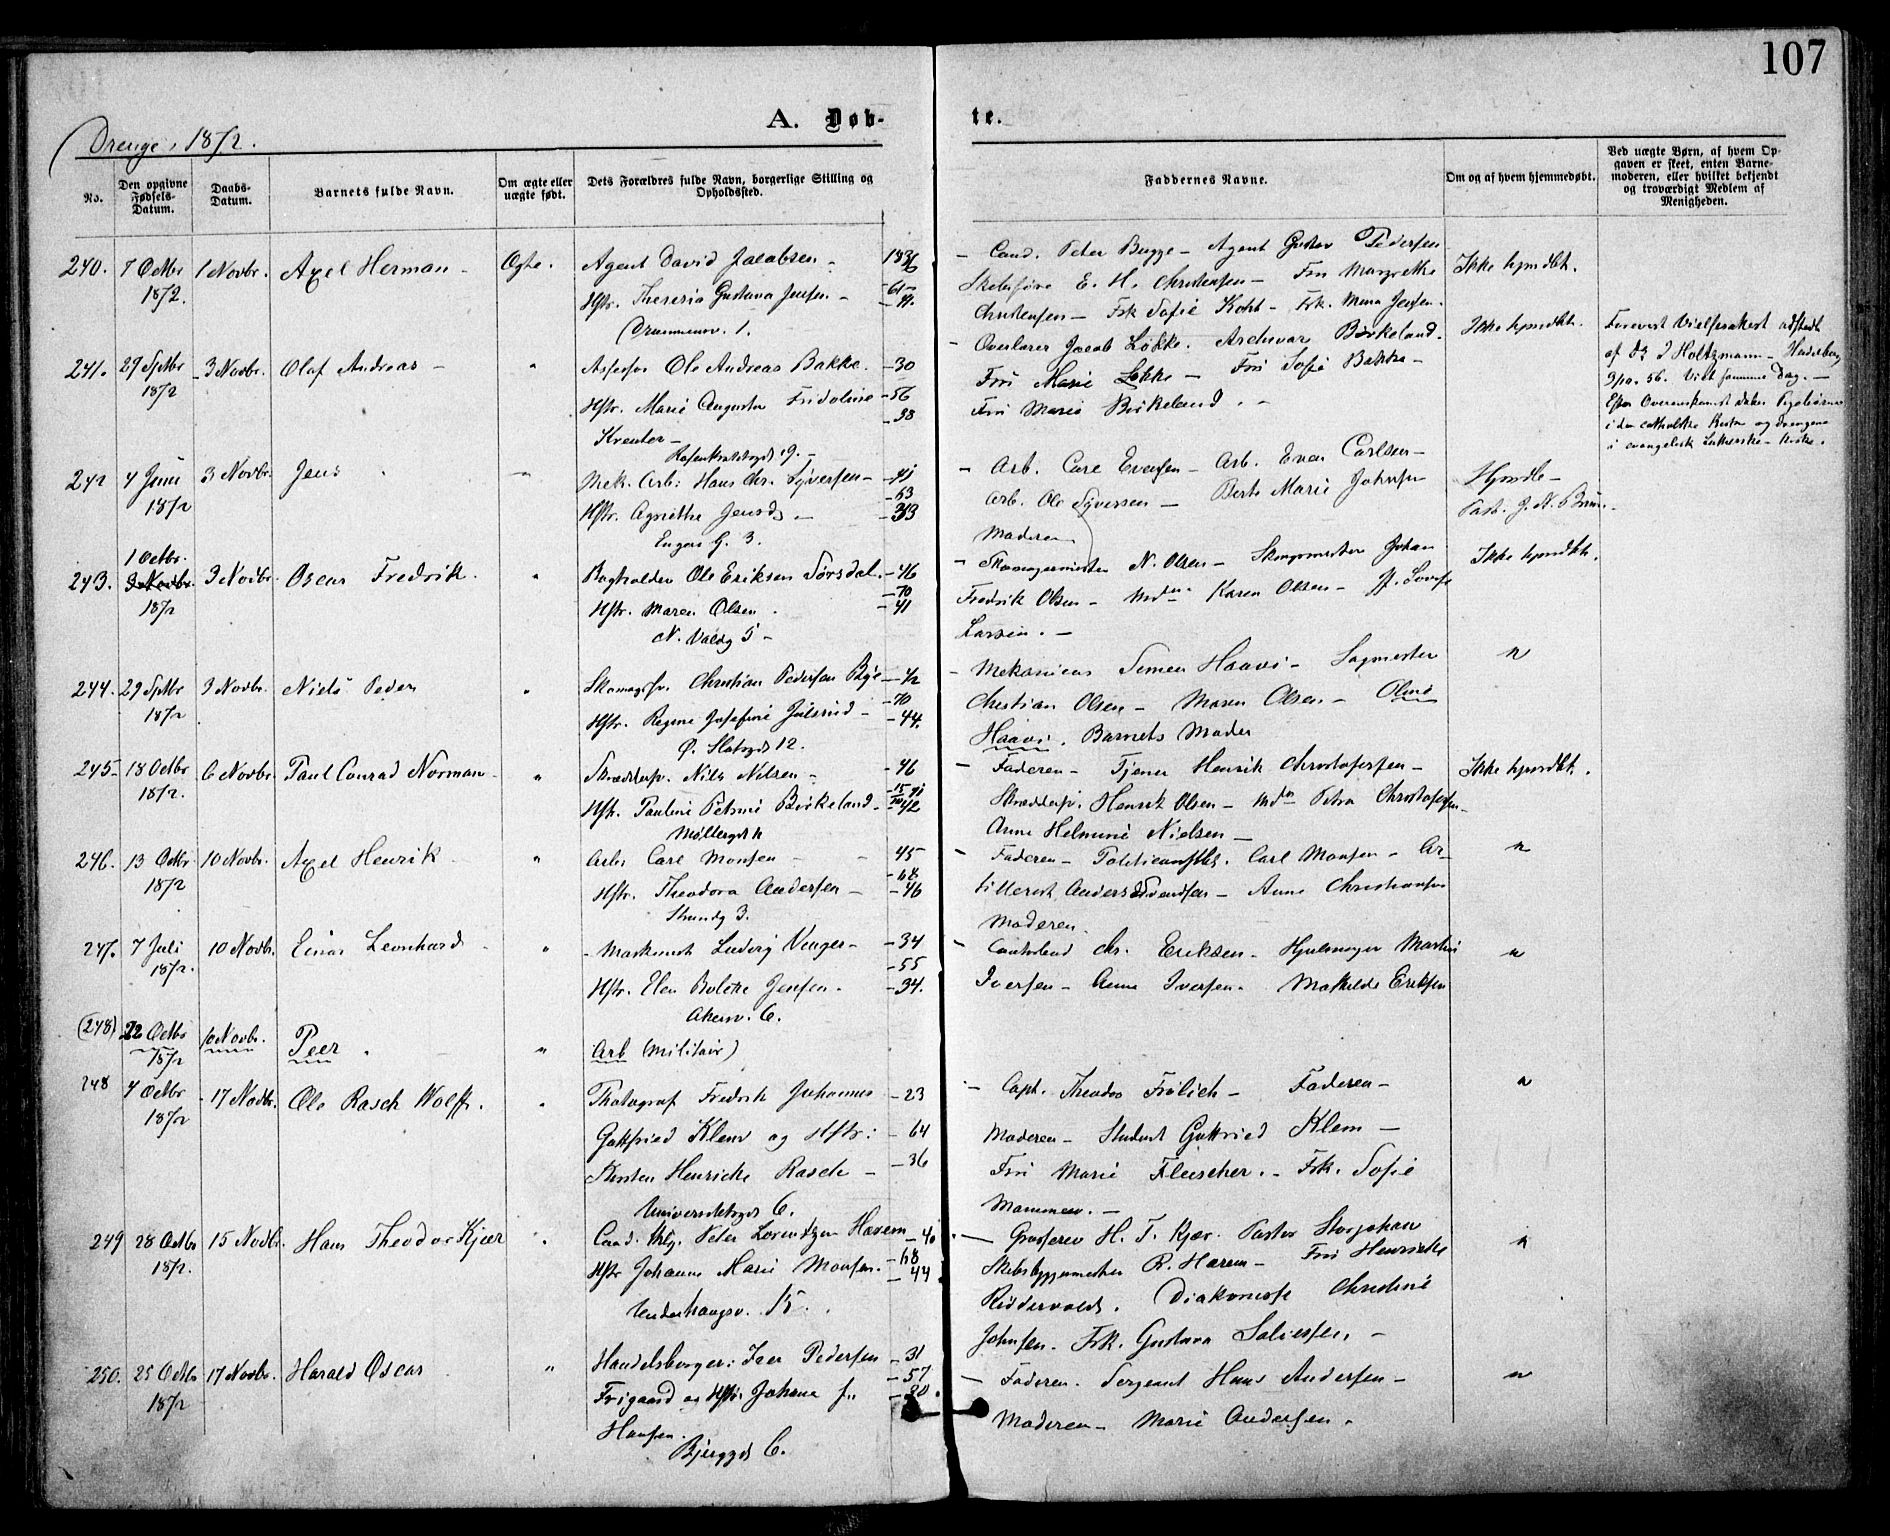 107
A. Døb-
te.
Drenge, 1872.
No.
Den opgivne Fødsels-Datum.
Daabs-Datum.
Barnets fulde Navn.
Om ægte eller uægte født.
Dets Forældres fulde Navn, borgerlige Stilling og Opholdssted.
Faddernes Navne.
Om og af hvem hjemmedøbt.
Ved uægte Børn, af hvem Opgaven er skeet, enten Barnemoderen, eller hvilket bekjendt og troværdigt Medlem af Menigheden.
240. 7 Octbr 1 Novbr. Axel Herman Ægte. Agent David Jacobsen 1836 Cand. Peter Bugge - Agent Gustav Pedersen
1872. Hstr. Theresia Gustava Jensen - E. H. Christensen - Fru Margrethe Ikke hjmdbt.
Drammensv. 1. Christensen - Frk Sofie - Frk. Mina Jensen.
241. 29 Sptbr 3 Novbr. Olaf Andreas " Assessor Ole Andreas Bakke - 30 Overlærer Jacob Løkke. Archivar Birkeland. Ikke hjmdbt.
1872 Hstr. Marie Augusta Fridoline - 56 Fru Marie Løkke - Fru Sofie Bakke -
38 Fru Marie Birkeland. -
Kreuter -
Rosenkrantzgd 19. -
Forevist Vielsesattest udstedt
af Holtzmann -
3/10. 56. Viet samme Dag. -
Efter Overenskomst døbes Pigebørnene
i den catholske og Drengene
i evangelisk Lutherske - Kirke.
242 4 Juni 3 Novbr. Jens " Mek. Arb: Hans Chr. Syversen - 41 Arb. Carl Evensen - Arb. Even Carlsen - Hjmdb -
1872 Hstr. Agnethe Jensd. - 63 Arb. Ole Syversen - Berte Marie Johnsen Past. J. N. Bruun.
33 Moderen
Engens G. 3.
243. 1 Octbr. 3 Novbr. Oscar Fredrik. " Bogholder Ole Eriksen Sørsdal. - 46 Skomagermester N. Olsen - Johan Ikke hjmdbt.
1872 Hstr. Maren Olsen. - 70 Fredrik Olsen - Mdm. Karen Olsen - Jf. Lovise
41 Larsen. -
N. Voldg 5 -
244. 29 Sptbr 3 Novbr. Niels Peder " Skomagersv. Christian Pedersen Bye - 42 Mekanicus Simen Haavi - Sagmester "
1872 - 70 Christian Olsen - Maren Olsen - Oline
Hstr. Regine Josefine Julsrud - - 44. Haavi. Barnets Moder
Ø. Slotsgd 12.
245 18 Octbr 6 Novbr. Paul Conrad Norman " Skræddersv. Nils Nilsen - - 46 Faderen - Tjener Henrik Christofersen - Ikke hjmdbt.
1872. Hstr. Pauline Petrine Birkeland. - 42 Skræddersv. Henrik Olsen - Mdm Petra Christofersen -
Møllergd Anne Helmine Nielsen -
246. 13 Octbr 10 Novbr. Axel Henrik " Arb: Carl Monsen - - 45 Faderen - Carl Monsen - Ar- "
1872 - 68 tillerist Anders Svendsen - Anne Christiansen
Hstr. Theodora Andersen - - 46 Moderen.
Strandg 3.
247. 7 Juli 10 Novbr. Einar Leonhard " Maskinist Ludvig Unger - - 34 Chr. Eriksen - Hjulmager Martin "
1872. - 55 Iversen - Anne Iversen - Mathilde Eriksen
Hstr. Elen Bolette Jensen. - 34.
Akersv. 6.
(248) 22 Octbr 10 Novbr. Peer " Arb (Militair)
1872
248 4 Octbr 17 Novbr. Ole Rasch Wolff. " Photograf Fredrik Johannes - 23 Capt. Theodor Frölich - Faderen - "
1872 Gottfried Klem og Hstr: - 64 Moderen - Student Gottfried Klem -
Kirsten Henricke Rasch - - 36 Fru Marie Fleischer. - Frk. Sofie
Universitetsgd 6. Mammen. -
249 28 Octbr 15 Novbr. Hans Theodor Kjær " Cand. thlg. Peter Lorentzen Hærem - 40 Grosserer H. T. Kjær. Pastor Storjohan "
1872. Hstr Johanne Marie Monsen. - 68 Skibsbyggermester R. Hærem - Fru Henriette
- 44 Riddervolds. Diakonisse Christine
Underhaugsv. 15. Johnsen. Frk. Gustava
250. 25 Octbr 17 Novbr. Harald Oscar " Handelsborger: Iver Pedersen - 31 Faderen. Sergeant Hans Andersen - "
1872 - 57
Frigaard og Hstr: Johane f. - 30. Moderen - Marie Andersen.
Hansen.
Bjerggd 6.